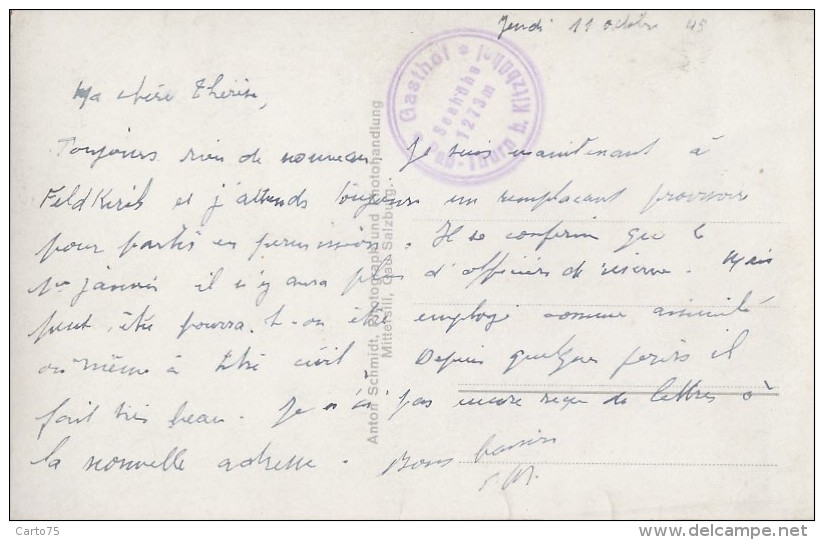 Jeudi 11 octobre 45
Ma chère Thérèse,
Toujours rien de nouveau. Je suis maintenant à
FeldKirch et j'attends toujours un remplaçant provisoire
pour partir en permission. Il se confirme que le
1er janvier il n'y aura plus d'officiers de réserve. Mais
peut être pourra-t-on être employé comme assimilé
ou même à titre civil. Depuis quelques jours il
fait très beau. Je n'ai pas encore reçu de lettres à
la nouvelle adresse. Bons baisers
Gasthof * Jungzbühel
Seehöhe
1273 m
Paß-Thurn b. Kitzbühel
Anton Schmidt, Photograph und Photohandlung
Mittersill, Gau Salzburg.
Carto75
www.delcampe.net